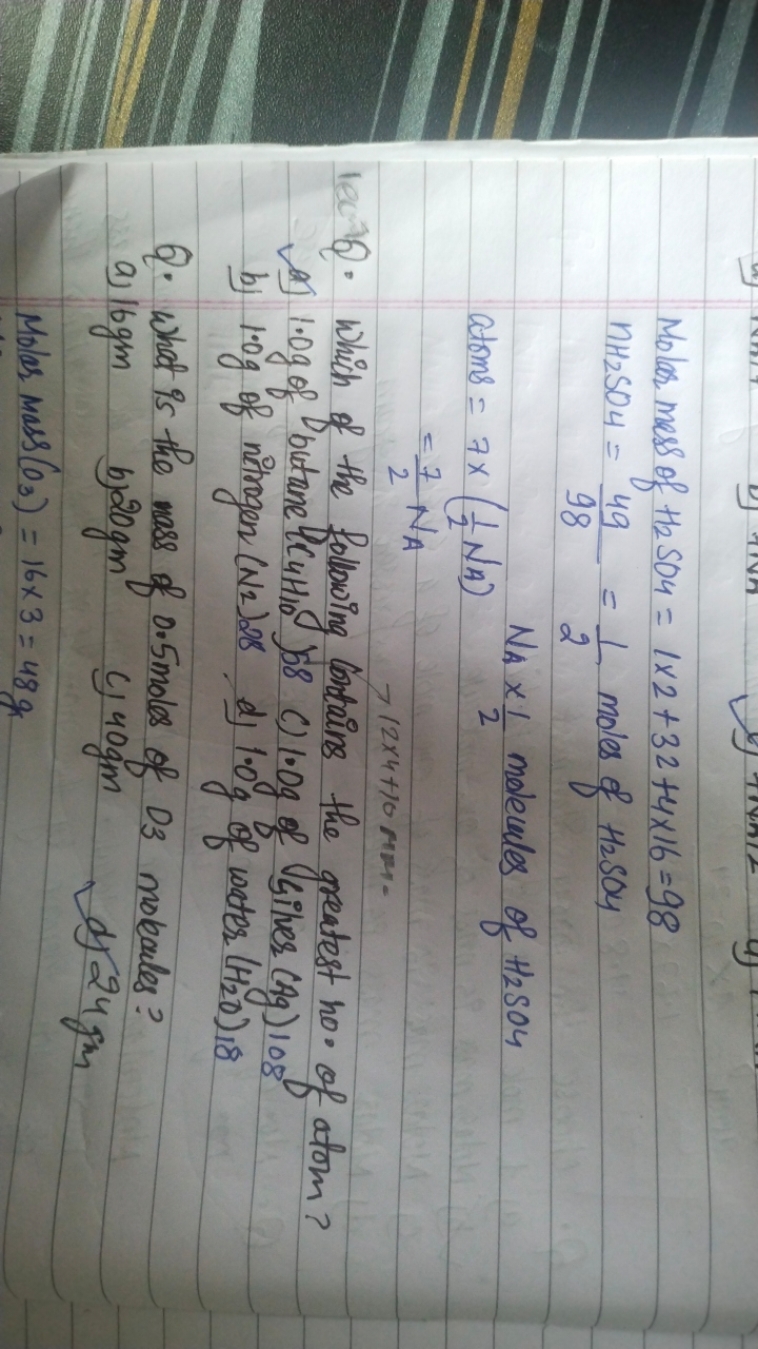 Molar mass of H2SO4 = 1x2 + 32 + 4x16 = 98
nH2SO4 = 49/98 = 1/2 moles of H2SO4
NA x 1/2 molecules of H2SO4
atoms = 7 x (1/2 NA)
= 7/2 NA
→ 12x4+10
Q. Which of the following contains the greatest no. of atom?
a) 1.0g of butane (C4H10) 58 c) 1.0g of Silver (Ag) 108
b) 1.0g of nitrogen (N2) 28 d) 1.0g of water (H2O) 18
Q. what is the mass of 0.5moles of O3 molecules?
a) 16gm b) 20gm c) 40gm d) 24gm
Molar mass (O3) = 16x3 = 48g